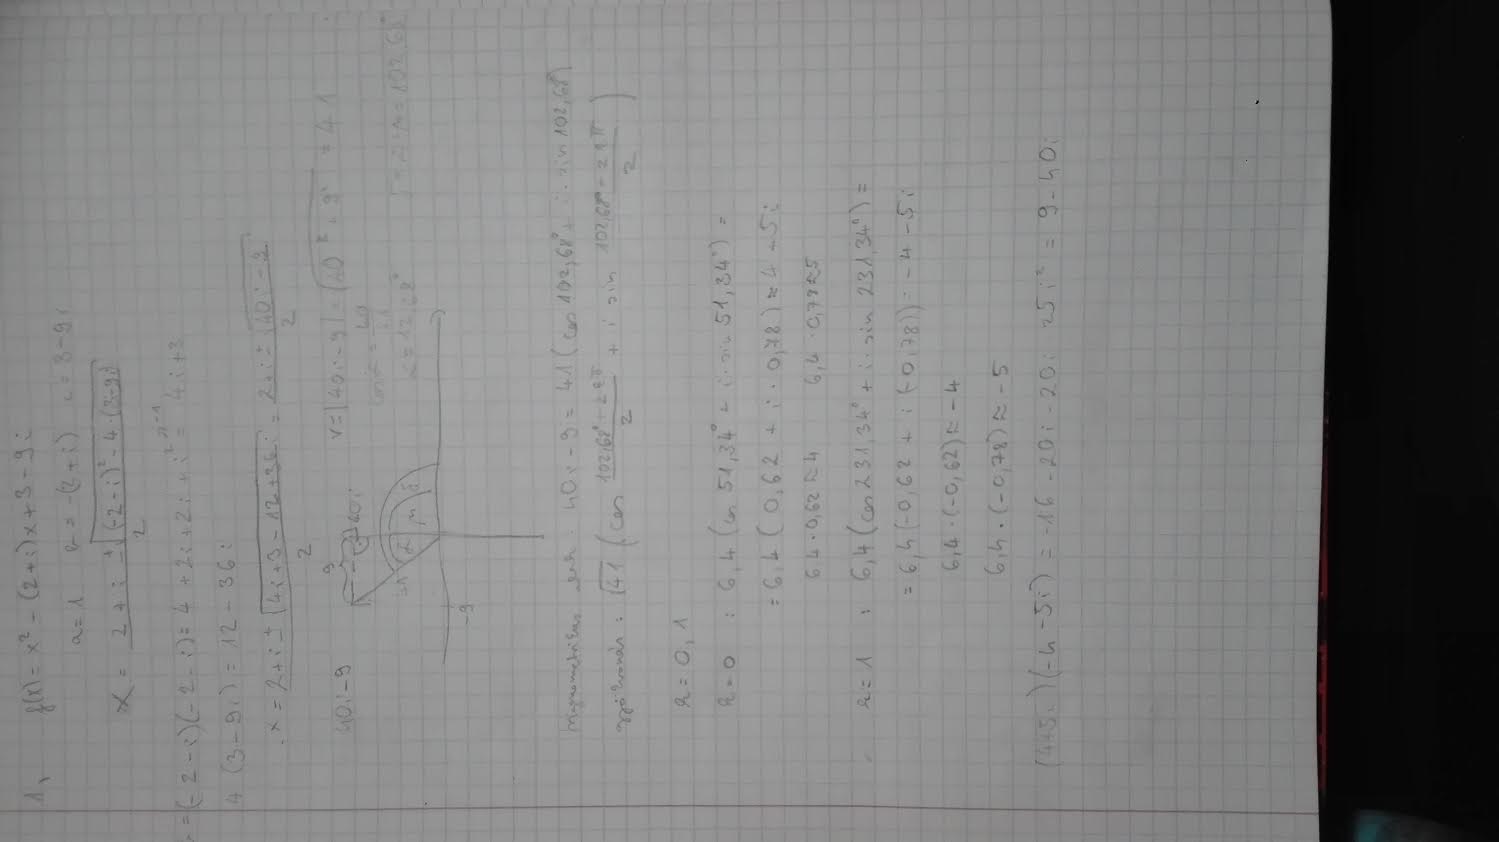 1, f(x) = x² - (2+i)x + 3 - 9i
a = 1 b = -(2+i) c = 3 - 9i
x = 2+i ± √(-2-i)² - 4·(3-9i) / 2
= (-2-i)(-2-i) = 4 + 2i + 2i + i² = 4i + 3
4 (3-9i) = 12 - 36i
x = 2+i ± √4i+3-12+36i / 2 = 2+i ± √40i-9 / 2
40i-9
9
40i
-9
r = |40i-9| = √40² + 9² = 41
102,68°
trigonometrikus 40i - 9 = 41 (cos 102,68° + i · sin 102,68°)
√41 (cos 102,68° + 2kπ / 2 + i sin 102,68° - 2kπ / 2)
k = 0, 1
k = 0 : 6,4 (cos 51,34° + i · sin 51,34°) =
= 6,4 (0,62 + i · 0,78) ≈ 4 + 5i
6,4 · 0,62 ≈ 4 6,4 · 0,78 ≈ 5
k = 1 : 6,4 (cos 231,34° + i · sin 231,34°) =
= 6,4 (-0,62 + i (-0,78)) = -4 - 5i
6,4 · (-0,62) ≈ -4
6,4 · (-0,78) ≈ -5
(4+5i)(-4-5i) = -16 - 20i - 20i - 25i² = 9 - 40i